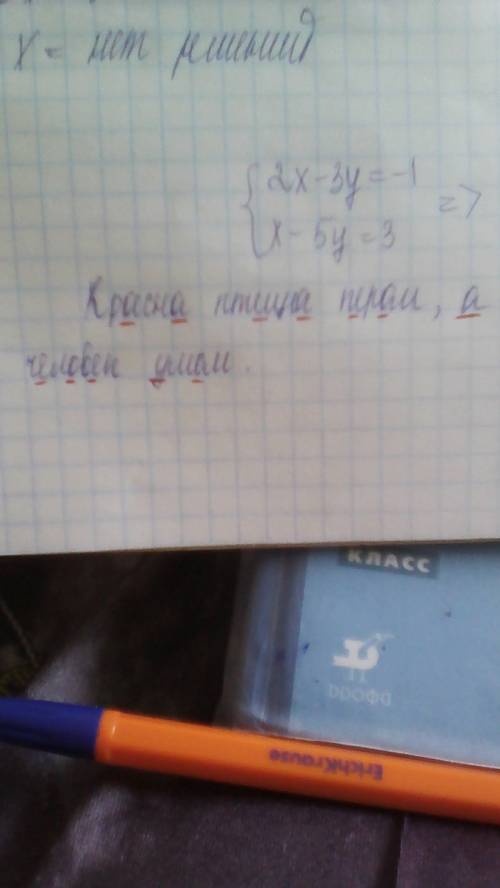 x = нет решений
2x-3y=-1
x-5y=3 =>
Красна птица перам, а
человек умам.
КЛАСС
ДРОФА
ErichKrause